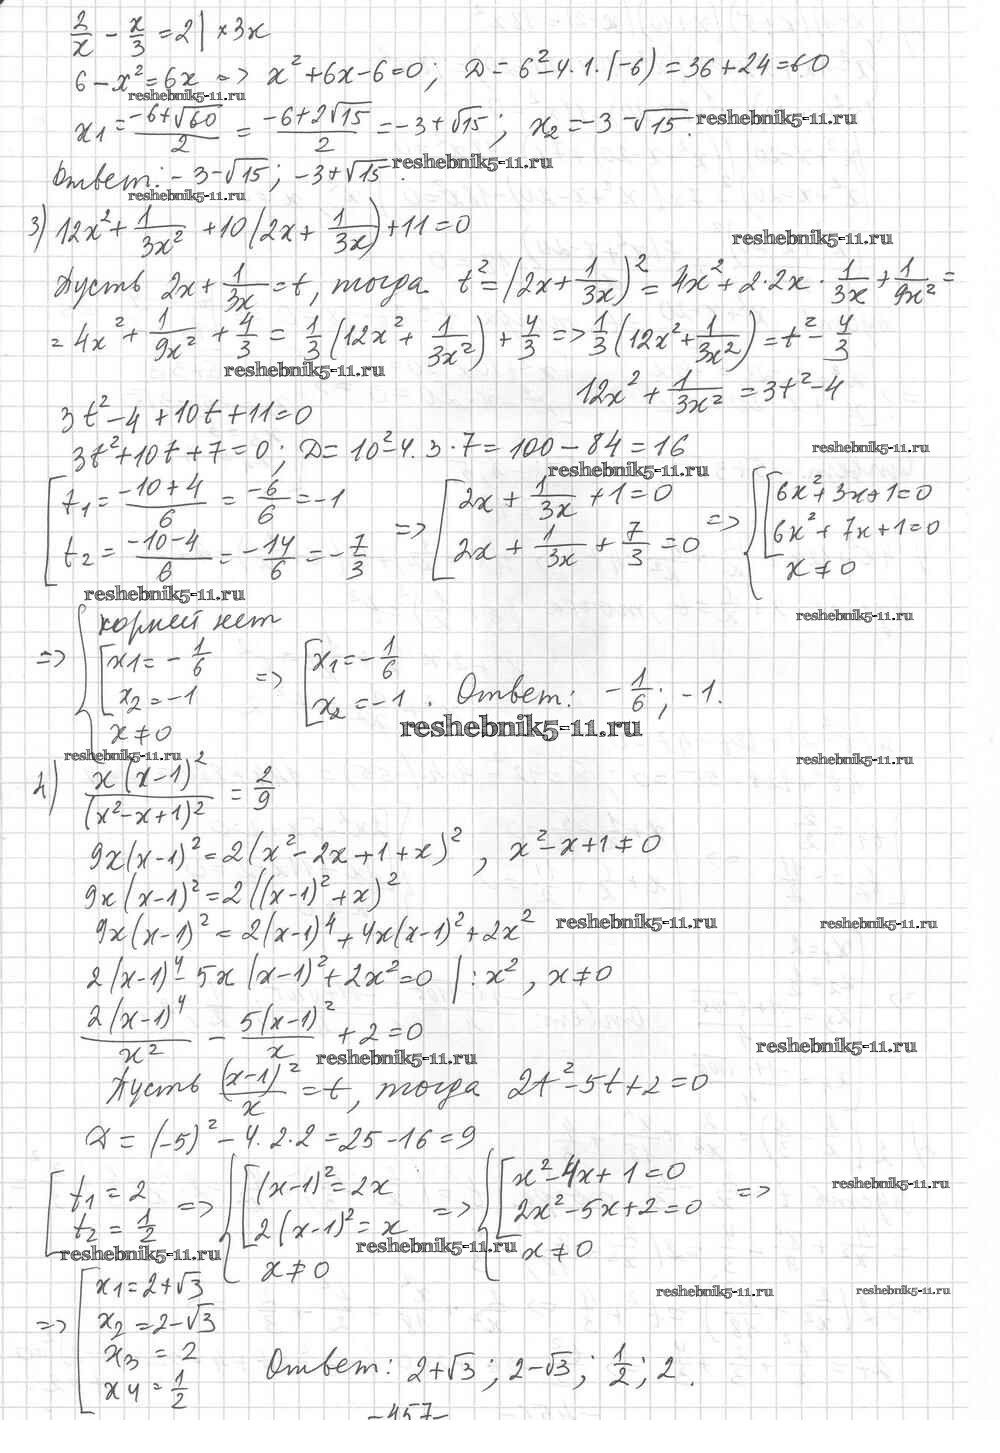 2/x - x/3 = 2 | × 3x
6 - x² = 6x => x² + 6x - 6 = 0; D = 6² - 4·1·(-6) = 36 + 24 = 60
reshebnik5-11.ru
x₁ = (-6+√60)/2 = (-6+2√15)/2 = -3+√15; x₂ = -3-√15. reshebnik5-11.ru
Ответ: -3-√15; -3+√15. reshebnik5-11.ru
reshebnik5-11.ru
3) 12x² + 1/(3x²) + 10(2x + 1/(3x)) + 11 = 0
reshebnik5-11.ru
Пусть 2x + 1/(3x) = t, тогда t² = (2x + 1/(3x))² = 4x² + 2·2x · 1/(3x) + 1/(9x²) =
= 4x² + 1/(9x²) + 4/3 = 1/3(12x² + 1/(3x²)) + 4/3 => 1/3(12x² + 1/(3x²)) = t² - 4/3
reshebnik5-11.ru
12x² + 1/(3x²) = 3t² - 4
3t² - 4 + 10t + 11 = 0
3t² + 10t + 7 = 0; D = 10² - 4·3·7 = 100 - 84 = 16 reshebnik5-11.ru
reshebnik5-11.ru
[ t₁ = (-10+4)/6 = -6/6 = -1 => [ 2x + 1/(3x) + 1 = 0 => { [ 6x² + 3x + 1 = 0
t₂ = (-10-4)/6 = -14/6 = -7/3 2x + 1/(3x) + 7/3 = 0 6x² + 7x + 1 = 0
x ≠ 0
reshebnik5-11.ru
reshebnik5-11.ru
=> { корней нет
[ x₁ = -1/6 => [ x₁ = -1/6
x₂ = -1 x₂ = -1. Ответ: -1/6; -1.
x ≠ 0 reshebnik5-11.ru
reshebnik5-11.ru reshebnik5-11.ru
4) x(x-1)²/(x²-x+1)² = 2/9
9x(x-1)² = 2(x² - 2x + 1 + x)², x² - x + 1 ≠ 0
9x(x-1)² = 2((x-1)² + x)²
9x(x-1)² = 2(x-1)⁴ + 4x(x-1)² + 2x² reshebnik5-11.ru reshebnik5-11.ru
2(x-1)⁴ - 5x(x-1)² + 2x² = 0 | : x², x ≠ 0
2(x-1)⁴/x² - 5(x-1)²/x + 2 = 0
reshebnik5-11.ru reshebnik5-11.ru
Пусть (x-1)²/x = t, тогда 2t² - 5t + 2 = 0
D = (-5)² - 4·2·2 = 25 - 16 = 9
[ t₁ = 2 => { [ (x-1)² = 2x => { [ x² - 4x + 1 = 0 => reshebnik5-11.ru
t₂ = 1/2 2(x-1)² = x 2x² - 5x + 2 = 0
reshebnik5-11.ru reshebnik5-11.ru
x ≠ 0 x ≠ 0
=> [ x₁ = 2+√3 reshebnik5-11.ru reshebnik5-11.ru
x₂ = 2-√3
x₃ = 2
x₄ = 1/2 Ответ: 2+√3; 2-√3; 1/2; 2.
-457-